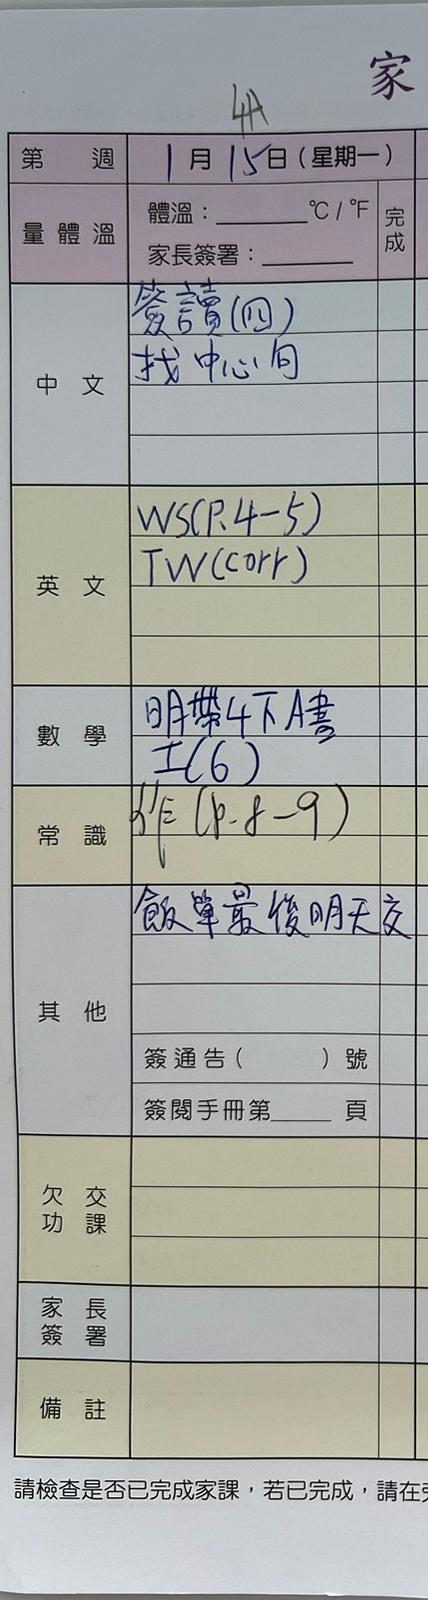 家
4A
第 週 1月15日(星期一)
量體溫 體溫:______°C/°F 完成
家長簽署:______
中文 簽讀(四)
找中心句
英文 WS(P.4-5)
TW(corr)
數學 明帶4下A書
工(6)
常識 作(p.8-9)
其他 飯單最後明天交
簽通告( )號
簽閱手冊第____頁
欠交功課
家長簽署
備註
請檢查是否已完成家課,若已完成,請在